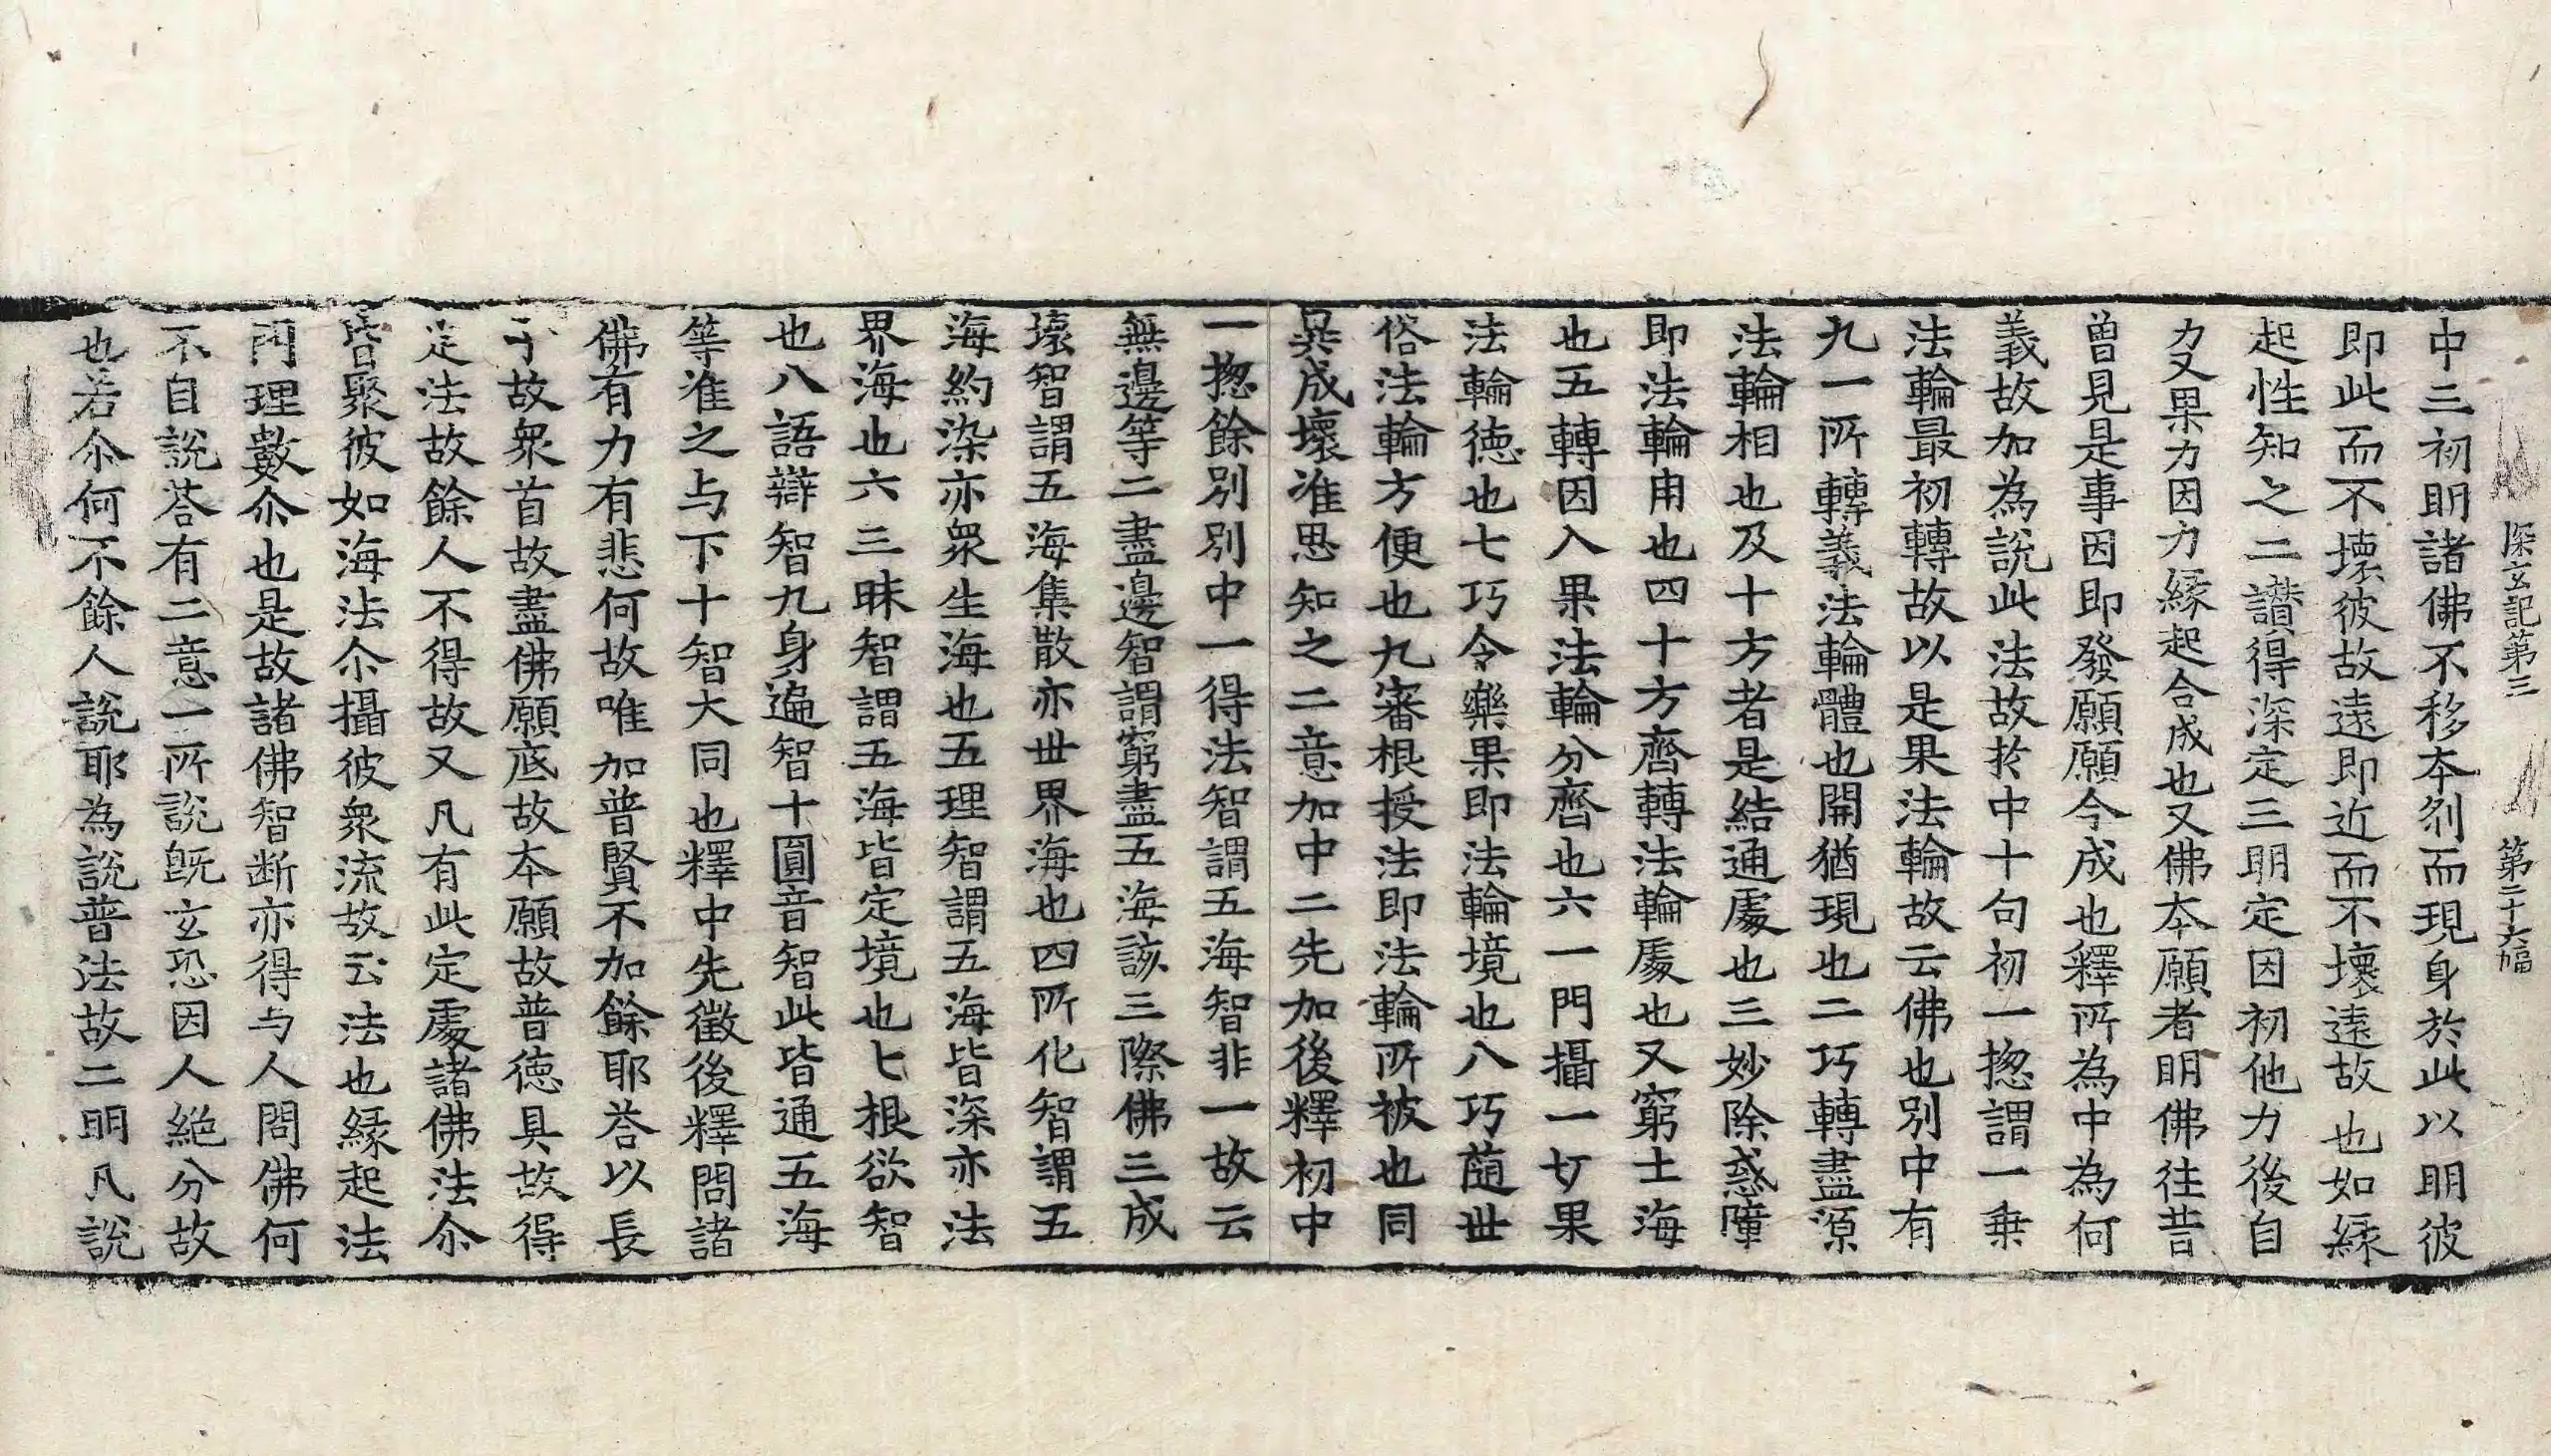 深玄記第三 第二十六幅
中三初明諸佛不移本刹而現身於此以明彼
即此而不壞彼故遠即近而不壞遠故也如縁
起性知之二讃得深定三明定因初他力後自
力又果力因力縁起合成也又佛本願者明佛往昔
曽見是事因即發願願今成也釋所為中為何
義故加為說此法故扵中十句初一揔謂一乗
法輪最初轉故以是果法輪故云佛也別中有
九一所轉義法輪體也開猶現也二巧轉盡源
法輪相也及十方者是結通處也三妙除惑障
即法輪用也四十方齊轉法輪處也又窮土海
也五轉因入果法輪分齊也六一門攝一切果
法輪徳也七巧令樂果即法輪境也八巧随丗
俗法輪方便也九審根授法即法輪所被也同
異成壞准思知之二意加中二先加後釋初中
一揔餘別別中一得法智謂五海智非一故云
無邊等二盡邊智謂窮盡五海該三際佛三成
壊智謂五海集散亦丗界海也四所化智謂五
海約染亦衆生海也五理智謂五海皆深亦法
界海也六三昧智謂五海皆定境也七根欲智
也八語辯智九身遍智十圓音智此皆通五海
等准之与下十智大同也釋中先徵後釋問諸
佛有力有悲何故唯加普賢不加餘耶荅以長
子故衆首故盡佛願底故本願故普徳具故得
定法故餘人不得故又凡有此定處諸佛法尒
皆聚彼如海法尒攝彼衆流故云法也縁起法
門理數尒也是故諸佛智断亦得与人問佛何
不自說荅有二意一所說旣玄恐因人絶分故
也若尒何不餘人說耶為說普法故二明凡說